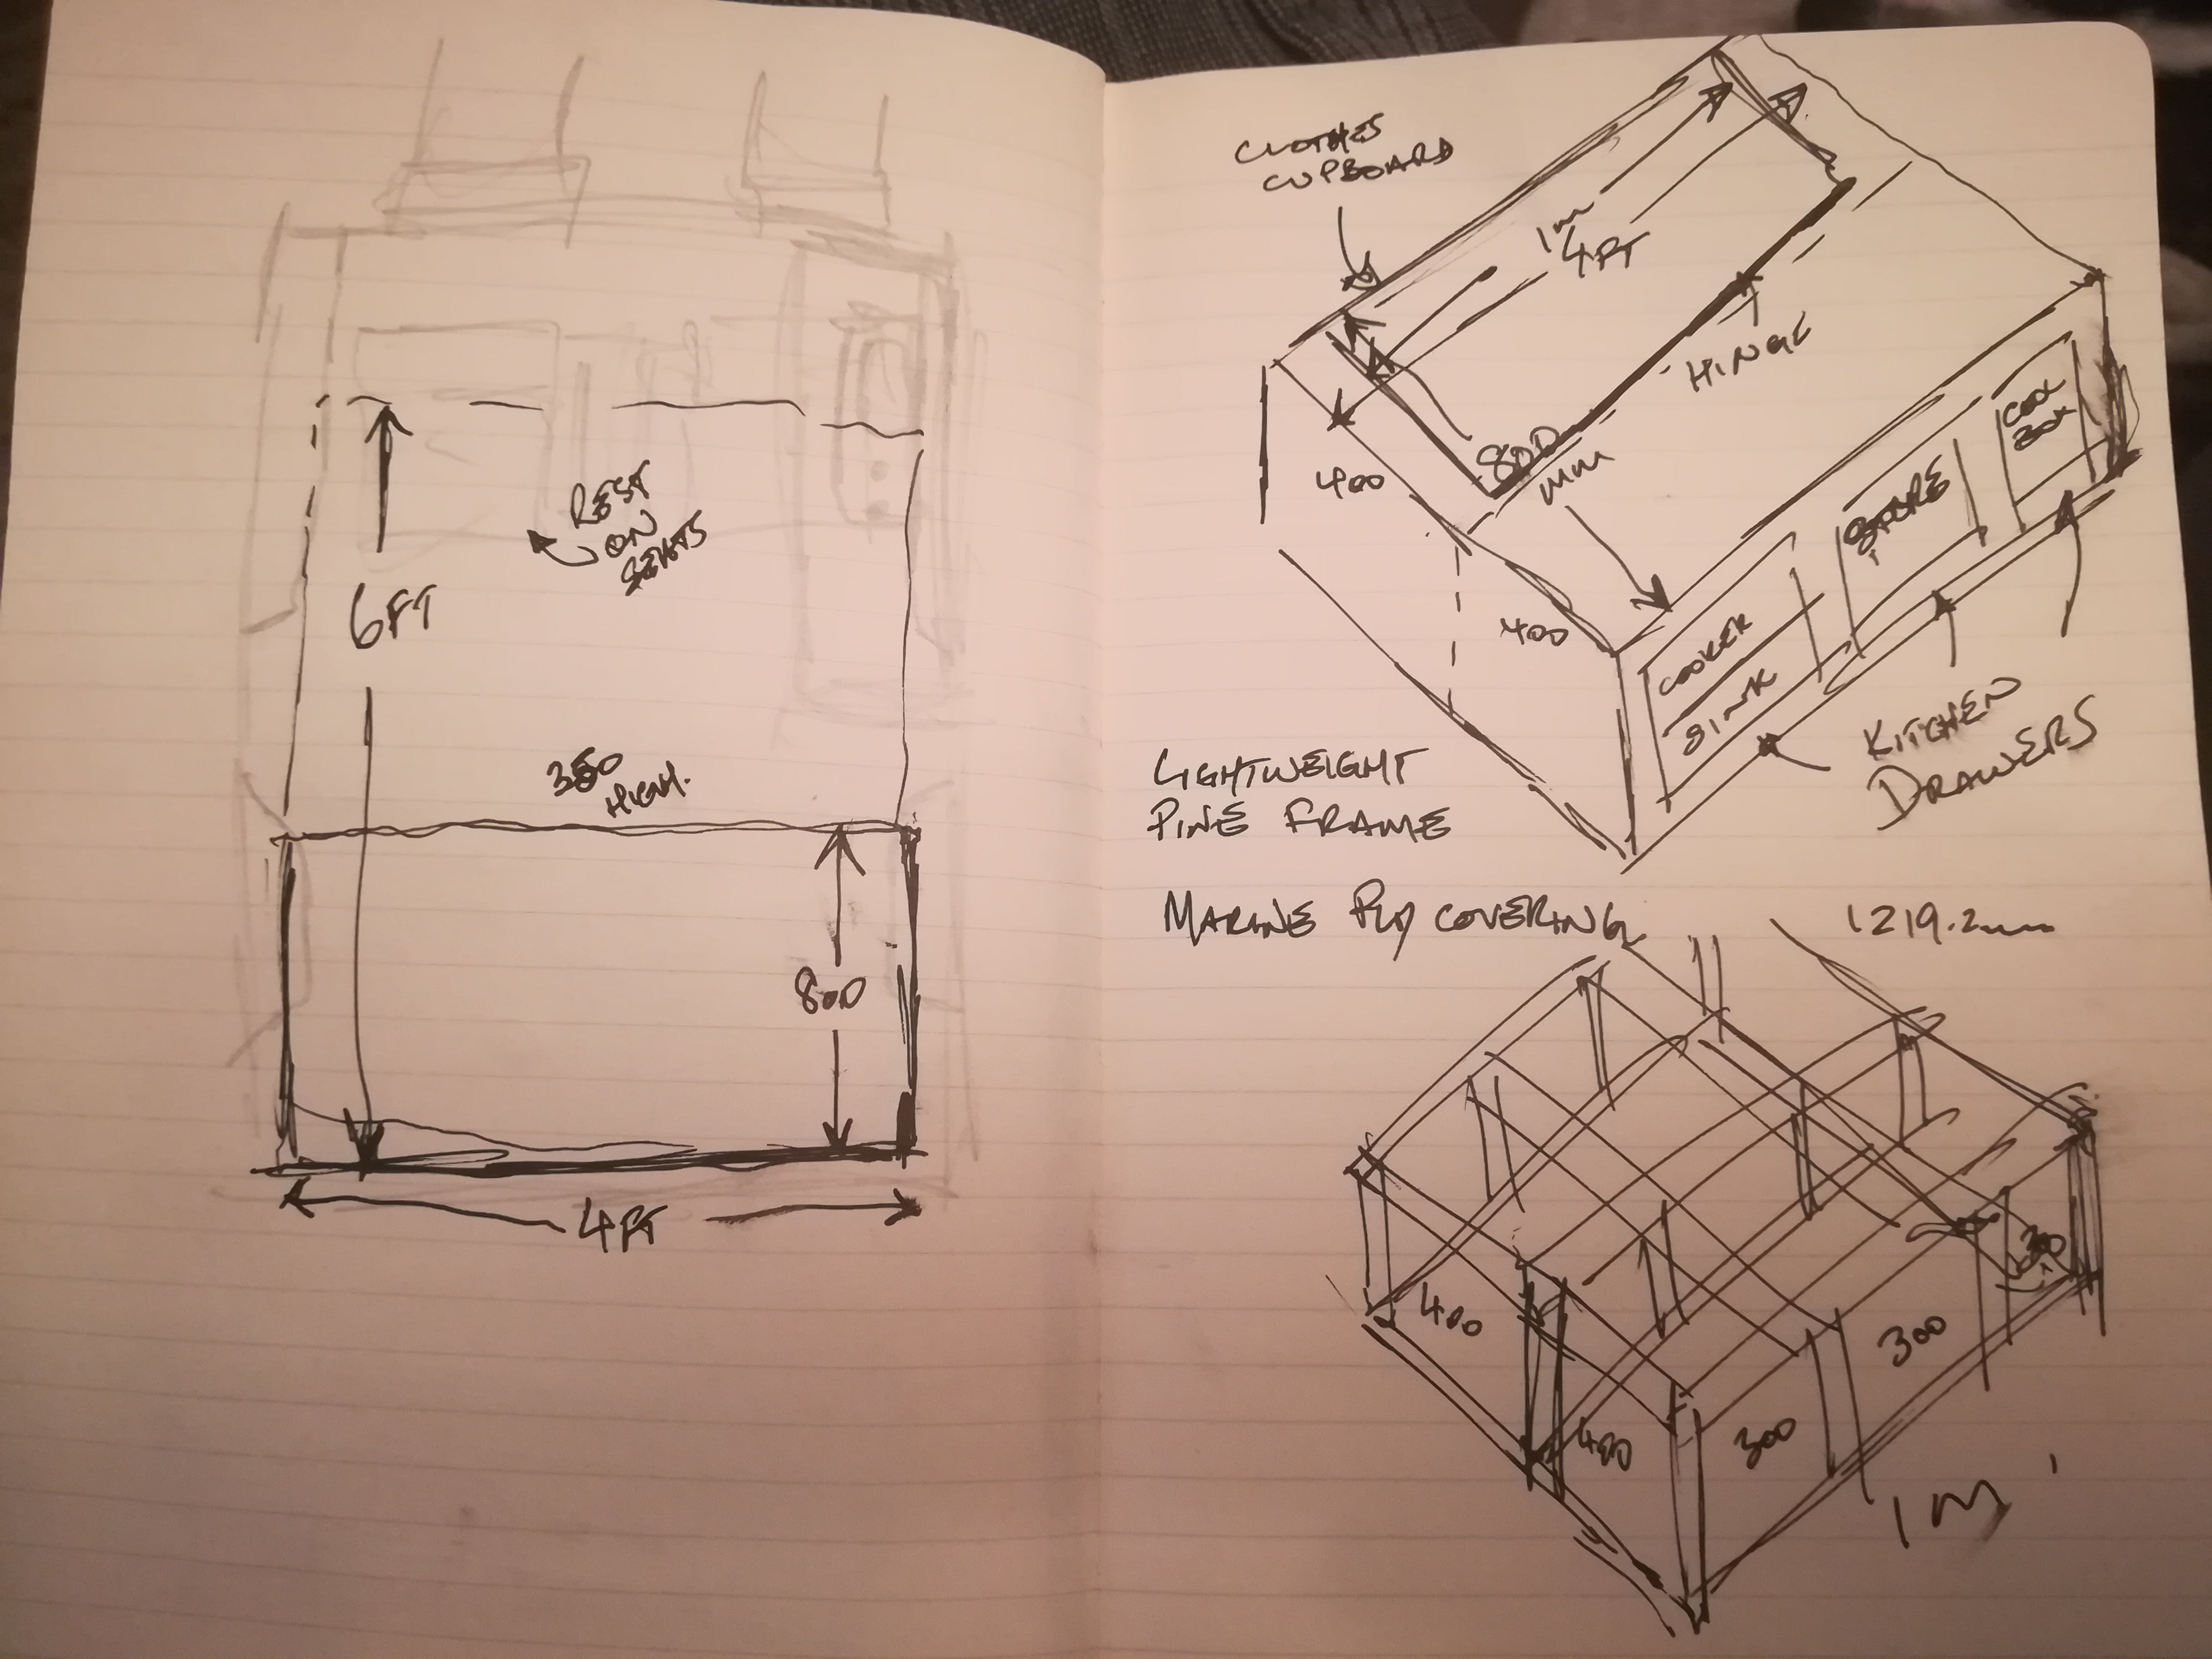 6FT
REST
ON
SEATS
350
HIGH.
800
4FT
CLOTHES
CUPBOARD
1m
4FT
HINGE
800
mm
400
400
COOKER
SINK
STORE
COOL
BOX
KITCHEN
DRAWERS
LIGHTWEIGHT
PINE FRAME
MARINE PLY COVERING
1219.2mm
400
400
300
300
300
1m